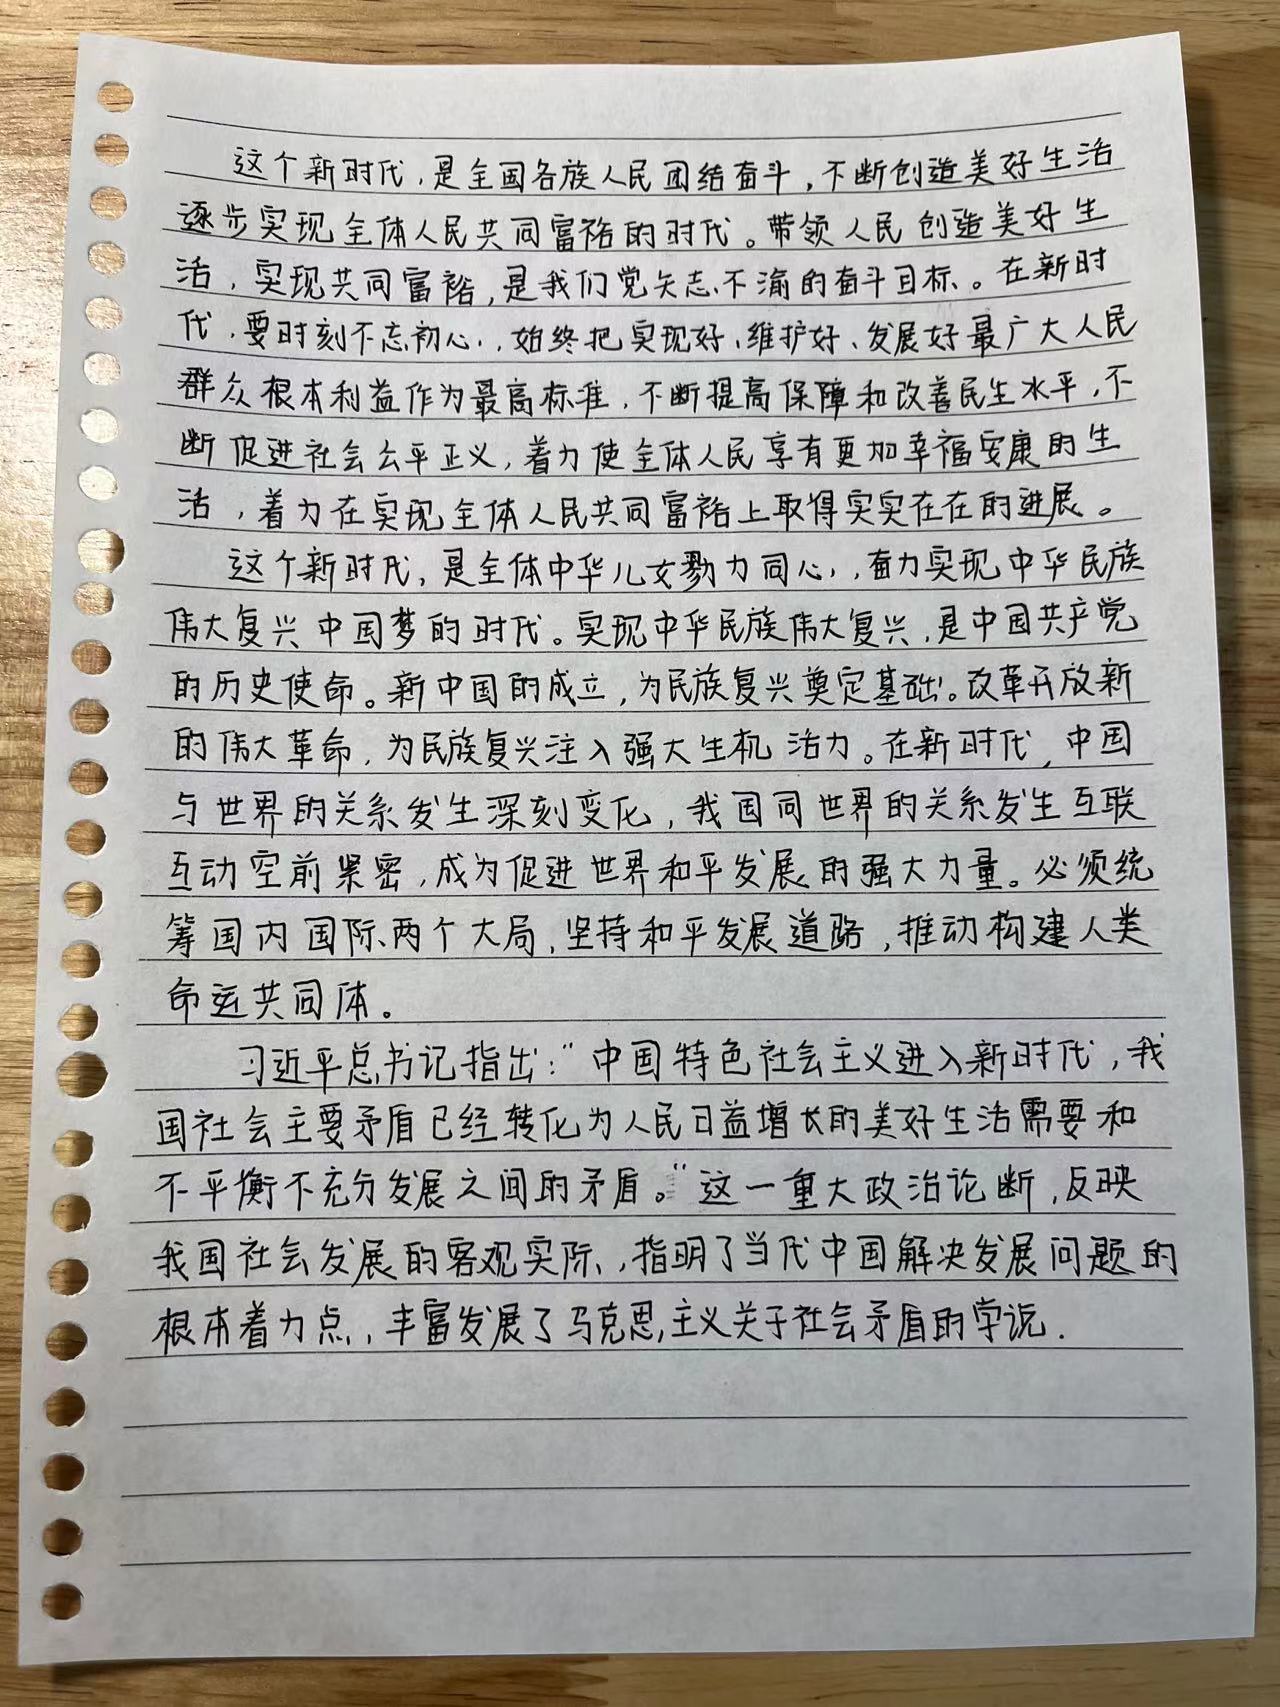 这个新时代，是全国各族人民团结奋斗，不断创造美好生活
逐步实现全体人民共同富裕的时代。带领人民创造美好生
活，实现共同富裕，是我们党矢志不渝的奋斗目标。在新时
代，要时刻不忘初心，始终把实现好、维护好、发展好最广大人民
群众根本利益作为最高标准，不断提高保障和改善民生水平，不
断促进社会公平正义，着力使全体人民享有更加幸福安康的生
活，着力在实现全体人民共同富裕上取得实实在在的进展。
这个新时代，是全体中华儿女勠力同心，奋力实现中华民族
伟大复兴中国梦的时代。实现中华民族伟大复兴，是中国共产党
的历史使命。新中国的成立，为民族复兴奠定基础。改革开放新
的伟大革命，为民族复兴注入强大生机活力。在新时代，中国
与世界的关系发生深刻变化，我国同世界的关系发生互联
互动空前紧密，成为促进世界和平发展的强大力量。必须统
筹国内国际两个大局，坚持和平发展道路，推动构建人类
命运共同体。
习近平总书记指出："中国特色社会主义进入新时代，我
国社会主要矛盾已经转化为人民日益增长的美好生活需要和
不平衡不充分发展之间的矛盾。"这一重大政治论断，反映
我国社会发展的客观实际，指明了当代中国解决发展问题的
根本着力点，丰富发展了马克思主义关于社会矛盾的学说.